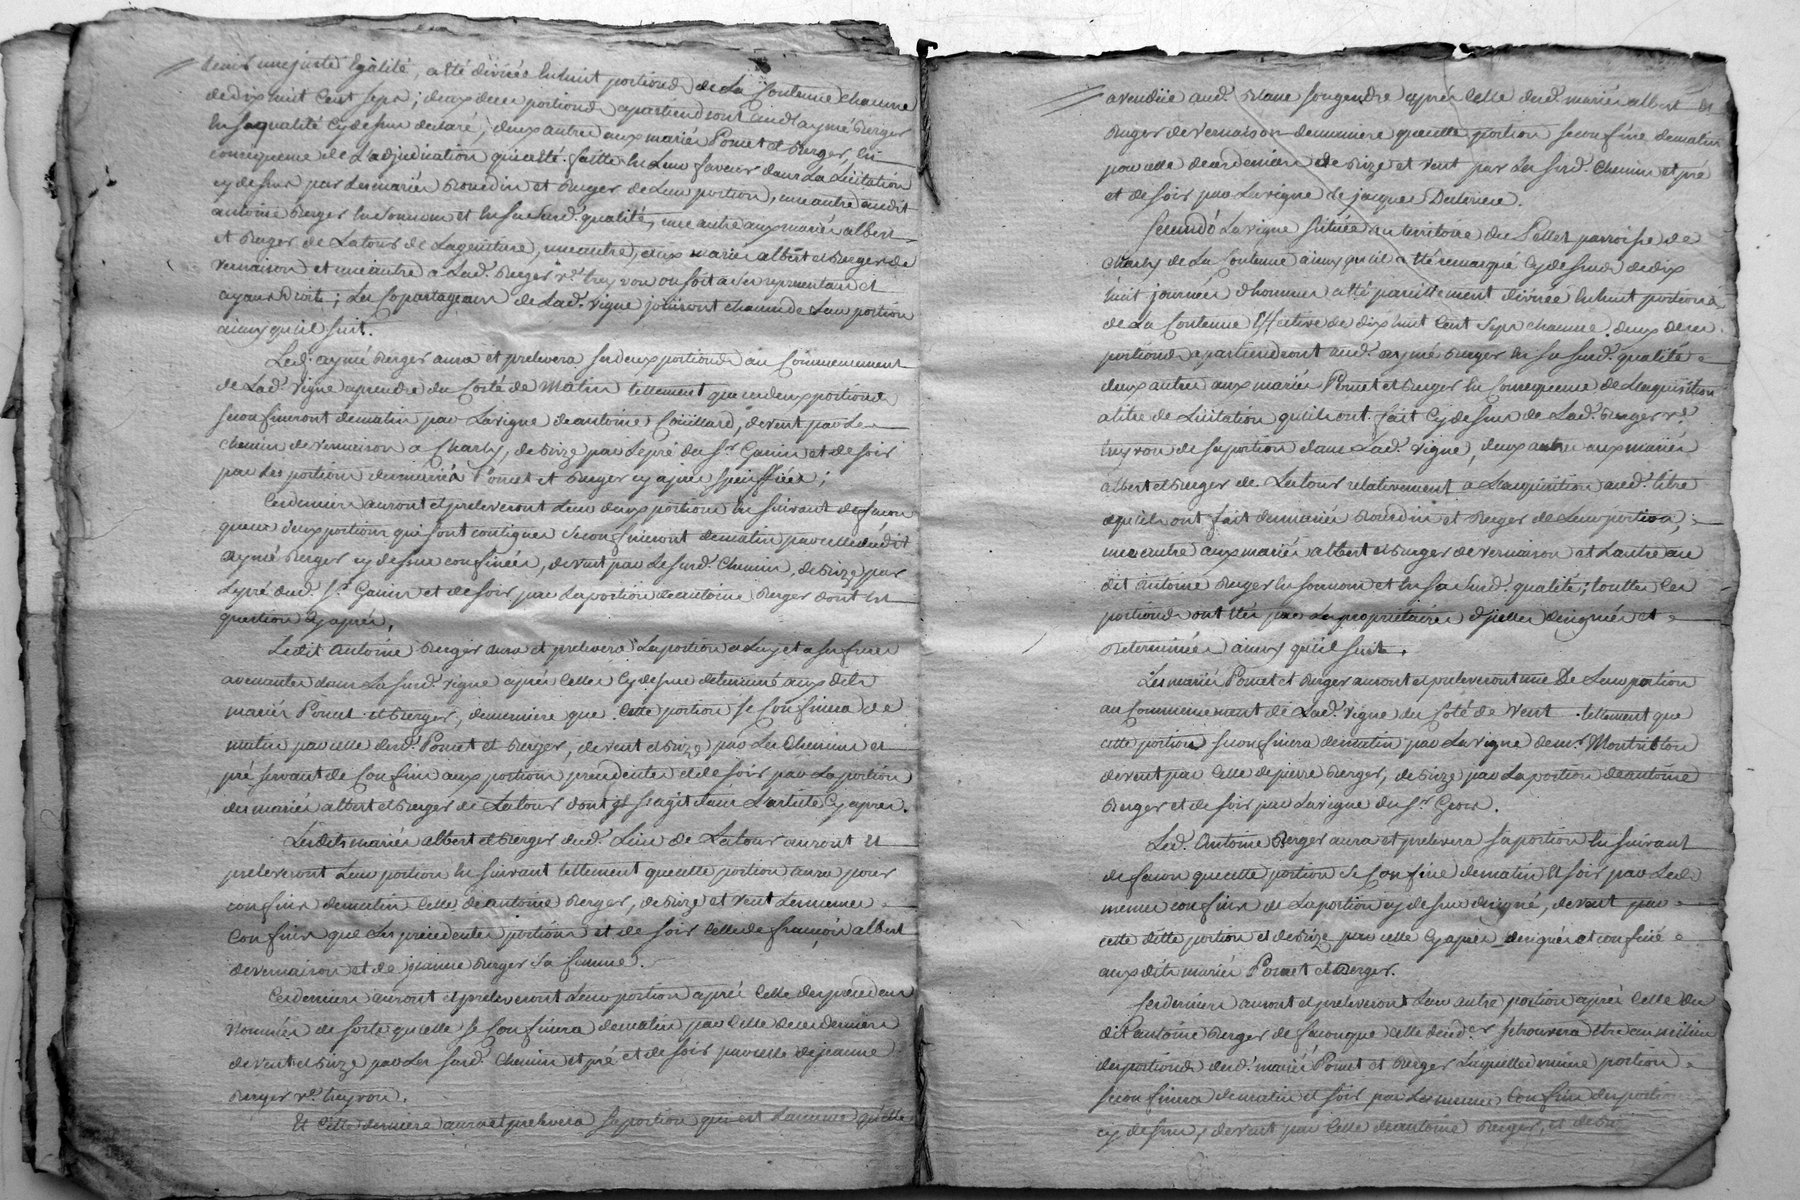 dans une juste Egalité, a été divisée en huit portions de La Contenue chacune
de dix huit Cent Seps; deux deces portions apartiendront aud. aymé Berger
en Sa qualité Cy dessus declaré, deux autres aux mariés Poncet et Berger, en
consequence de L'adjudication qui a eté faitte en Leur faveur dans La Licitation
cy dessus par Les mariés Bourdin et Berger de Leur portion, une autre audit
antoine Berger en Son nom et en Sa Susd. qualité, une autre aux mariés albert
et Berger de Latour de Lagenture, une autre aux mariés albert et Berger de
vernaison et une autre a Lad. Berger ve. treyvon ou soit a Ses representans et
ayans droits; Les Copartageans de Lad. vigne jouiront chacun de Leur portion
ainsy qu'il suit.
Led. aymé Berger aura et prelevera Ses deux portions au Commencement
de Lad. vigne aprendre du Costé de Matin tellement que ces deux portions
Se confineront de matin par La vigne de antoine Couillard, de vent par Le
chemin de vernaison a Charly, de Bize par Le pré du Sr. Ganin et de soir
par Les portions des mariés Poncet et Berger cy aprés spéciffiées;
Ces derniers auront et preleveront Leur deux portions en suivant de facon
que ces deux portions qui sont contigues Se confineront de matin par celle dudit
Aymé Berger cy dessus confinées, de vent par Le Susd. Chemin, de Bize par
Le pré dud. Sr. Ganin et de soir par La portion de antoine Berger dont est
question Cy aprés.
Ledit Antoine Berger aura et prelevera La portion a Luy et a Ses freres
avenantes dans La Susd. vigne aprés Celles Cy dessus determiné aux dits
mariés Poncet et Berger, de maniere que Cette portion Se Confinera de
matin par celle desd. Poncet et Berger, de vent et Bize par Les Chemins et
pré servant de Confins aux portions precedentes et de soir par La portion
des mariés albert et Berger de Latour dont il s'agit dans L'article Cy aprés.
Lesdits mariés albert et Berger dud. Lieu de Latour auront et
preleveront Leur portion en suivant tellement que cette portion aura pour
confins de matin Celle de antoine Berger, de Bize et vent Les memes
Confins que Les precedentes portions et de soir Celle de francois albert
de vernaison et de jeanne Berger sa femme.
Ces derniers auront et preleveront Leur portion aprés Celle des precedens
Nommés de sorte qu'elle Se Confinera de matin par Celle de ces derniers
de vent et Bize par Les Susd. Chemin et pré et de soir par celle de jeanne
Berger ve. treyvon.
Et Cette derniere aura et prelevera Sa portion qui est La meme qu'elle
a vendüe aud. Blanc son gendre aprés Celle desd. mariés albert et
Berger de vernaison de maniere que cette portion Se confine de matin
par celle de ces derniers de Bize et vent par Les Susd. Chemin et pré
et de soir par La vigne de jacques
Secundó La vigne Située au territoire du Pellet parroisse de
Charly de La Contenue ainsy qu'il a été remarqué Cy dessus de dix
huit journées d'hommes a été pareillement divisée en huit portions
de La Contenue Effective de dix huit Cent Seps chacune. deux de ces
portions apartiendront aud. aymé Berger en Sa Susd. qualité
deux autres aux mariés Poncet et Berger en Consequence de L'aquisition
a titre de Licitation qu'ils ont fait Cy dessus de Lad. Berger ve.
treyvon de Sa portion dans Lad. vigne, deux autres aux mariés
albert et Berger de Latour relativement a L'acquisition aud. titre
qu'ils ont fait des mariés Bourdin et Berger de Leur portion,
une autre aux mariés albert et Berger de vernaison et L'autre au
dit antoine Berger en Son nom et en Sa Susd. qualité; touttes Ces
portions ont étés par Les proprietaires d'jcelles designées et
determinées ainsy qu'il suit.
Les mariés Poncet et Berger auront et preleveront une De Leurs portion
au Commencement de Lad. vigne du Coté de Vent tellement que
cette portion se confinera de matin par La vigne de mr. Montriblon
de vent par Celle de pierre Berger, de Bize par La portion de antoine
Berger et de soir par La vigne du Sr. Gros.
Led. Antoine Berger aura et prelevera Sa portion en suivant
de facon que cette portion Se Confine de matin et soir par Les
memes confins de La portion cy dessus designé, de vent par
cette ditte portion et de Bize par celle Cy aprés designée et confiné
aux dits mariés Poncet et Berger.
Ses derniers auront et preleveront Leur autre portion aprés Celle du
dit antoine Berger de facon que Celle de ce der. Se trouvera Etre au milieu
des portions desd. mariés Poncet et Berger Laquelle portion
Se confinera de matin et soir par Les memes Confins des portions
cy dessus, de vent par Celle de antoine Berger, et de Bi